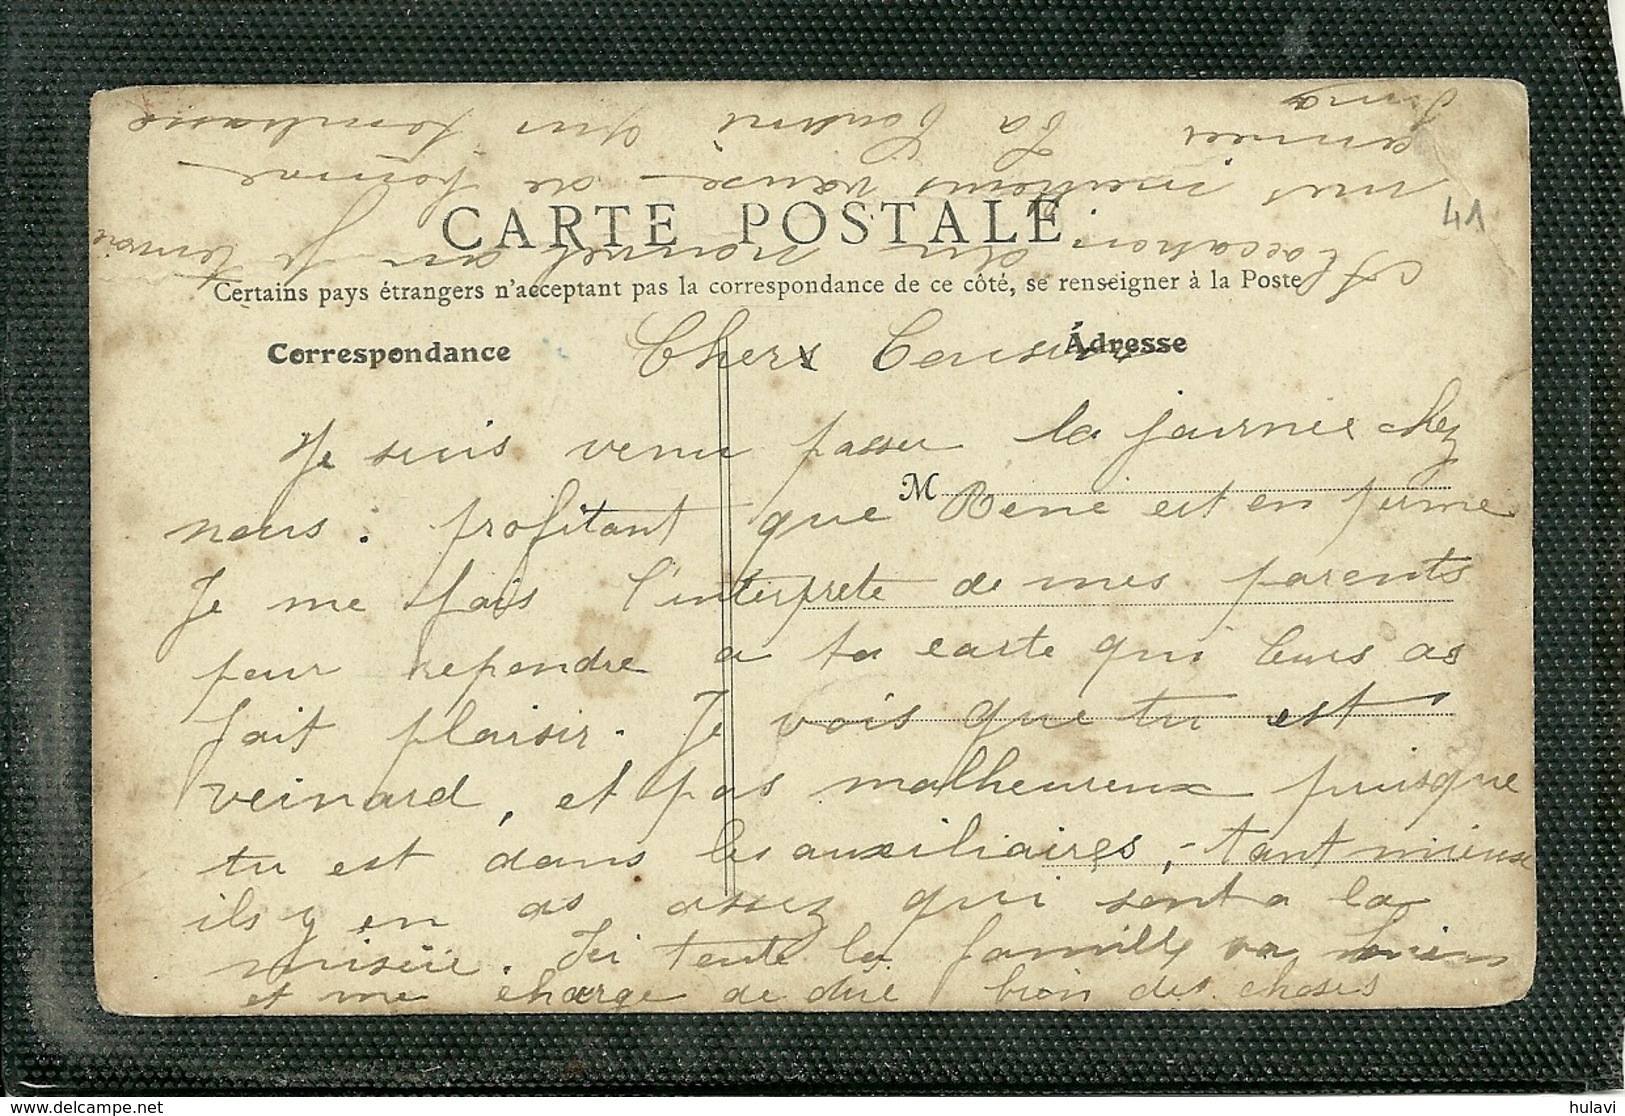 CARTE POSTALE
41
Certains pays étrangers n'acceptent pas la correspondance de ce côté, se renseigner à la Poste
Correspondance
Adresse
M
Chers Cousin
Je suis venu passer la journee chez
nous : profitant que René est en perme
Je me fais l'interprete de mes parents
pour rependre a ta carte qui leurs as
fait plaisir. Je vois que tu est
veinard, et pas malheureux puisque
tu est dans les auxiliaires, - tant mieux
ils y en as assez qui sont a la
misère. Ici toute la famille va bien
et me charge de dire bien des choses
A l'occasion du nouvel an Je termine
mes meilleurs vœux de bonne
année Ta Cousine qui t'embrasse
hulavi